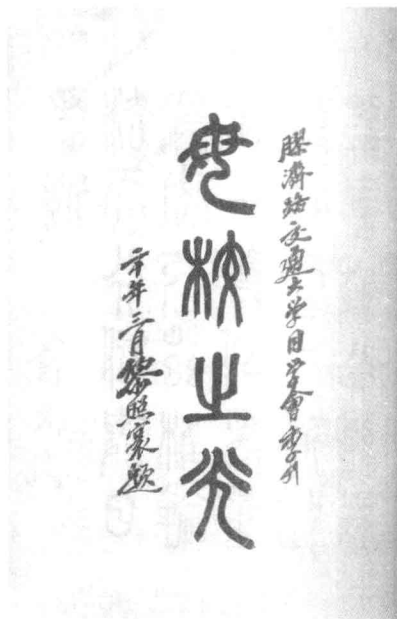 膠濟路交通大學同學會季刊
母校之光
二十年三月黎照寰題